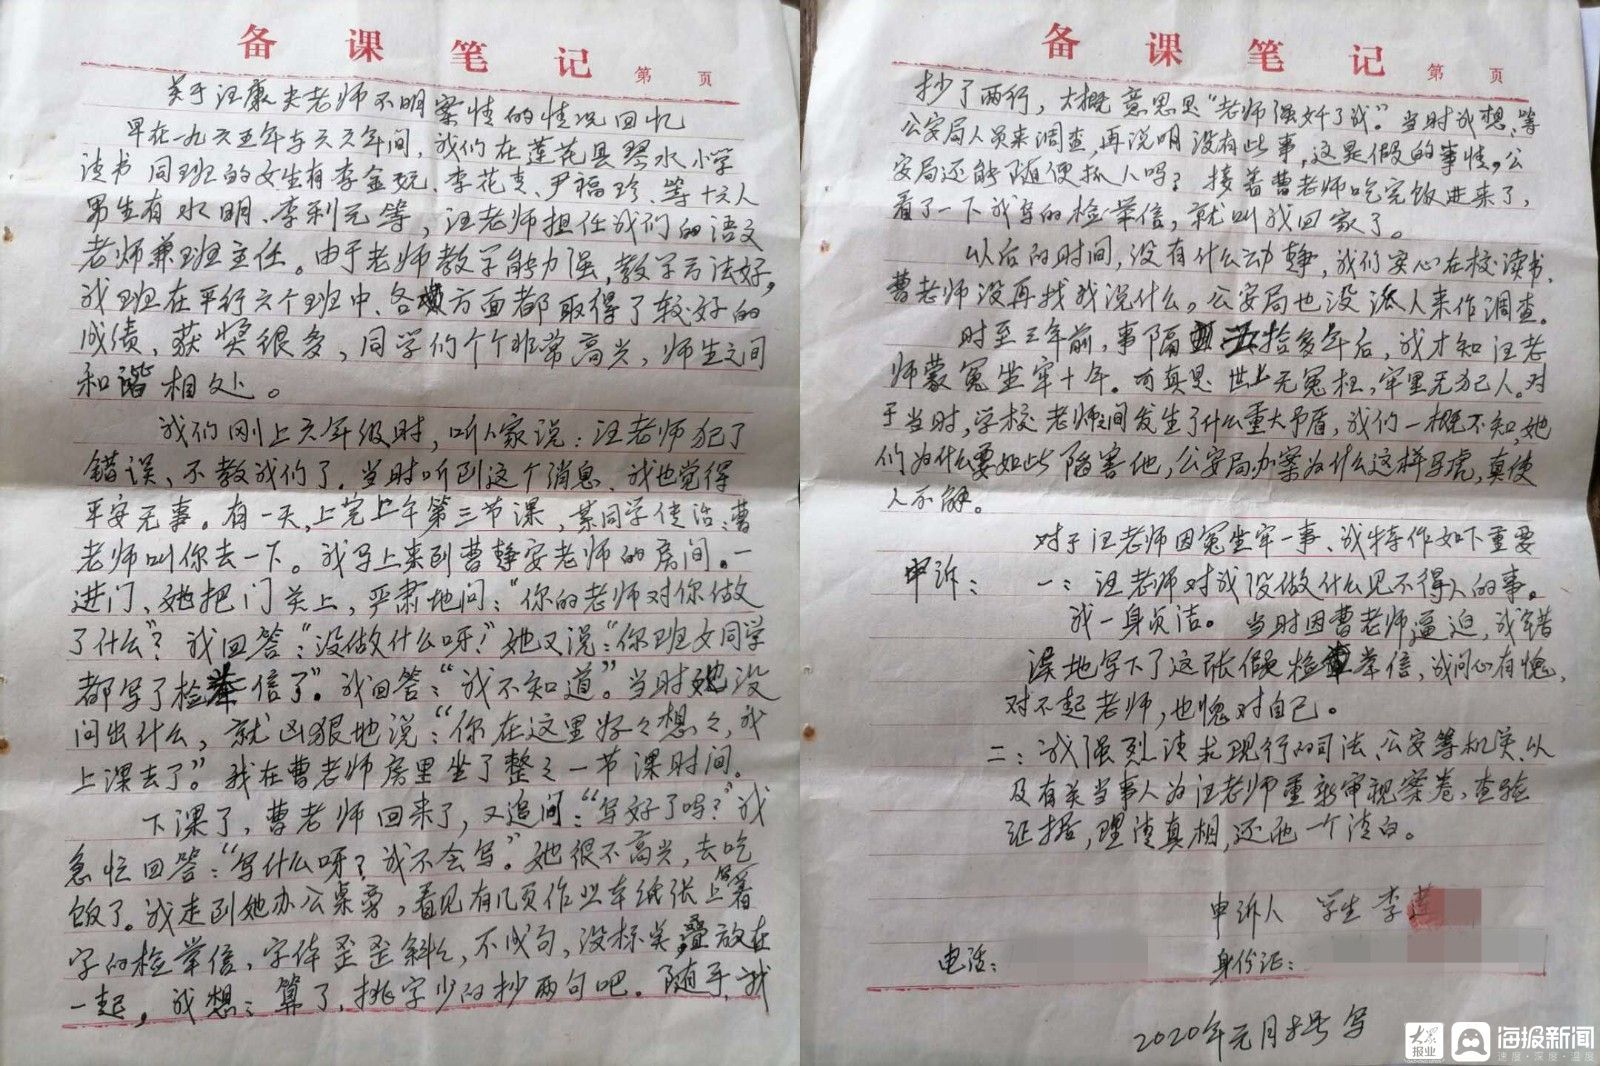 备课笔记 第 页
关于汪康夫老师不明案情的情况回忆
早在一九六五年与六六年间，我们在莲花县琴水小学
读书 同班的女生有李金玩、李花青、尹福珍、等十六人
男生有水明、李利元等，汪老师担任我们的语文
老师兼班主任。由于老师教学能力强，教学方法好，
我班在平行六个班中、各方面都取得了较好的
成绩，获奖很多，同学们个个非常高兴，师生之间
和谐相处。
我们刚上六年级时，听人家说：汪老师犯了
错误，不教我们了。当时听到这个消息、我也觉得
平安无事。有一天，上完上午第三节课，某同学传话：曹
老师叫你去一下。我马上来到曹静安老师的房间。一
进门、她把门关上，严肃地问：“你的老师对你做
了什么”？我回答：“没做什么呀！”她又说：“你班女同学
都写了检举信了”。我回答：“我不知道”。当时她没
问出什么，就凶狠地说：“你在这里好々想々，我
上课去了”。我在曹老师房里坐了整々一节课时间。
下课了，曹老师回来了，又追问：“写好了吗？”我
急忙回答：“写什么呀？我不会写。”她很不高兴，去吃
饭了。我走到她办公桌旁，看见有几页作业本纸张上写着
字的检举信，字体歪歪斜々，不成句，没标点，叠放在
一起，我想：算了，挑字少的抄两句吧。随手，我
备课笔记 第 页
抄了两行，大概意思是“老师强奸了我”。当时我想、等
公安局人员来调查，再说明没有此事，这是假的事情，公
安局还能随便抓人吗？接着曹老师吃完饭进来了，
看了一下我写的检举信，就叫我回家了。
以后的时间，没有什么动静，我们安心在校读书、
曹老师没再找我说什么。公安局也没派人来作调查。
时至三年前，事隔五拾多年后，我才知汪老
师蒙冤坐牢十年。有真是世上无冤枉，牢里无犯人。对
于当时，学校老师之间发生了什么重大矛盾，我们一概不知，她
们为什么要如此陷害他，公安局办案为什么这样马虎，真使
人不解。
对于汪老师因冤坐牢一事、我特作如下重要
申诉：一：汪老师对我没做什么见不得人的事。
我一身贞洁。当时因曹老师逼迫，我错
误地写下了这张假检举信，我问心有愧，
对不起老师，也愧对自己。
二：我强烈请求现行的司法、公安等机关、以
及有关当事人为汪老师重新审视案卷、查验
证据，理清真相，还他一个清白。
申诉人 学生 李莲
电话： 身份证：
2020年元月8号写
大众报业 海报新闻
速度·深度·温度